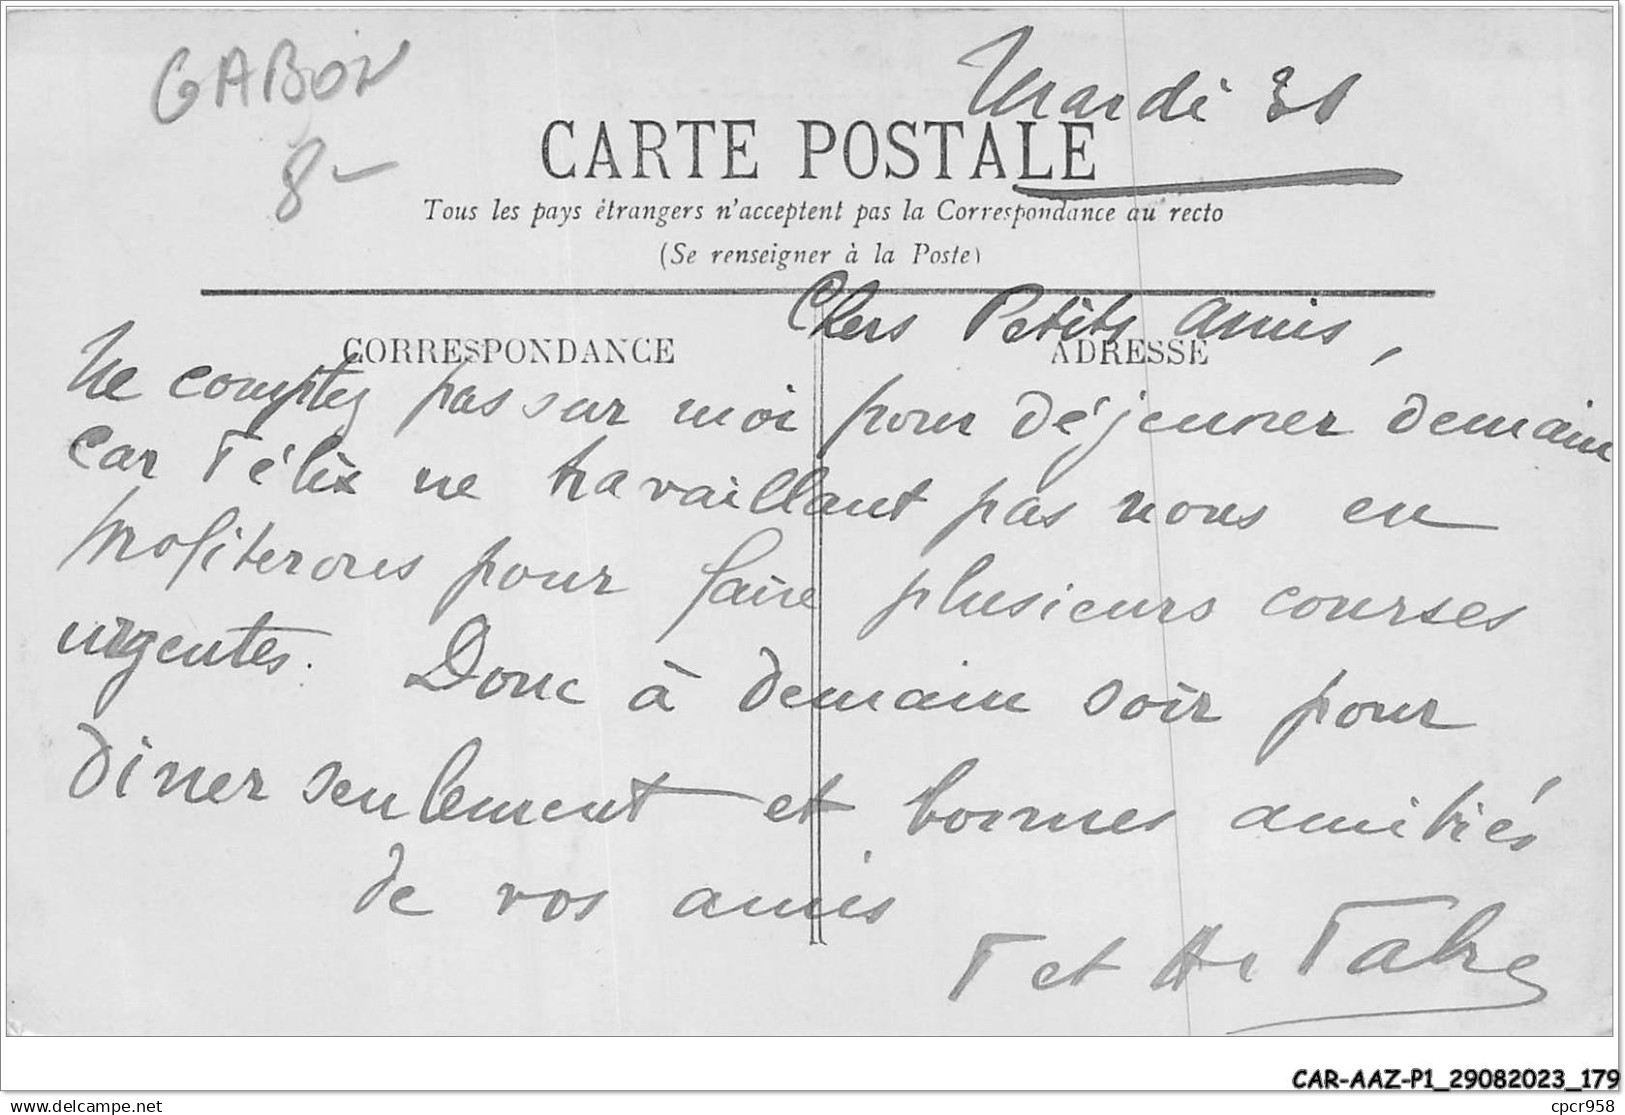 GABON
8-
Mardi 31
CARTE POSTALE
Tous les pays étrangers n'acceptent pas la Correspondance au recto
(Se renseigner à la Poste)
Chers Petits amis,
CORRESPONDANCE
ADRESSE
Ne comptez pas sur moi pour déjeuner demain
car Félix ne travaillant pas nous en
profiterons pour faire plusieurs courses
urgentes. Donc à demain soir pour
diner seulement et bonnes amitiés
de vos amis
F et
CAR-AAZ-P1_29082023_179
delcampe.net
cpcr958